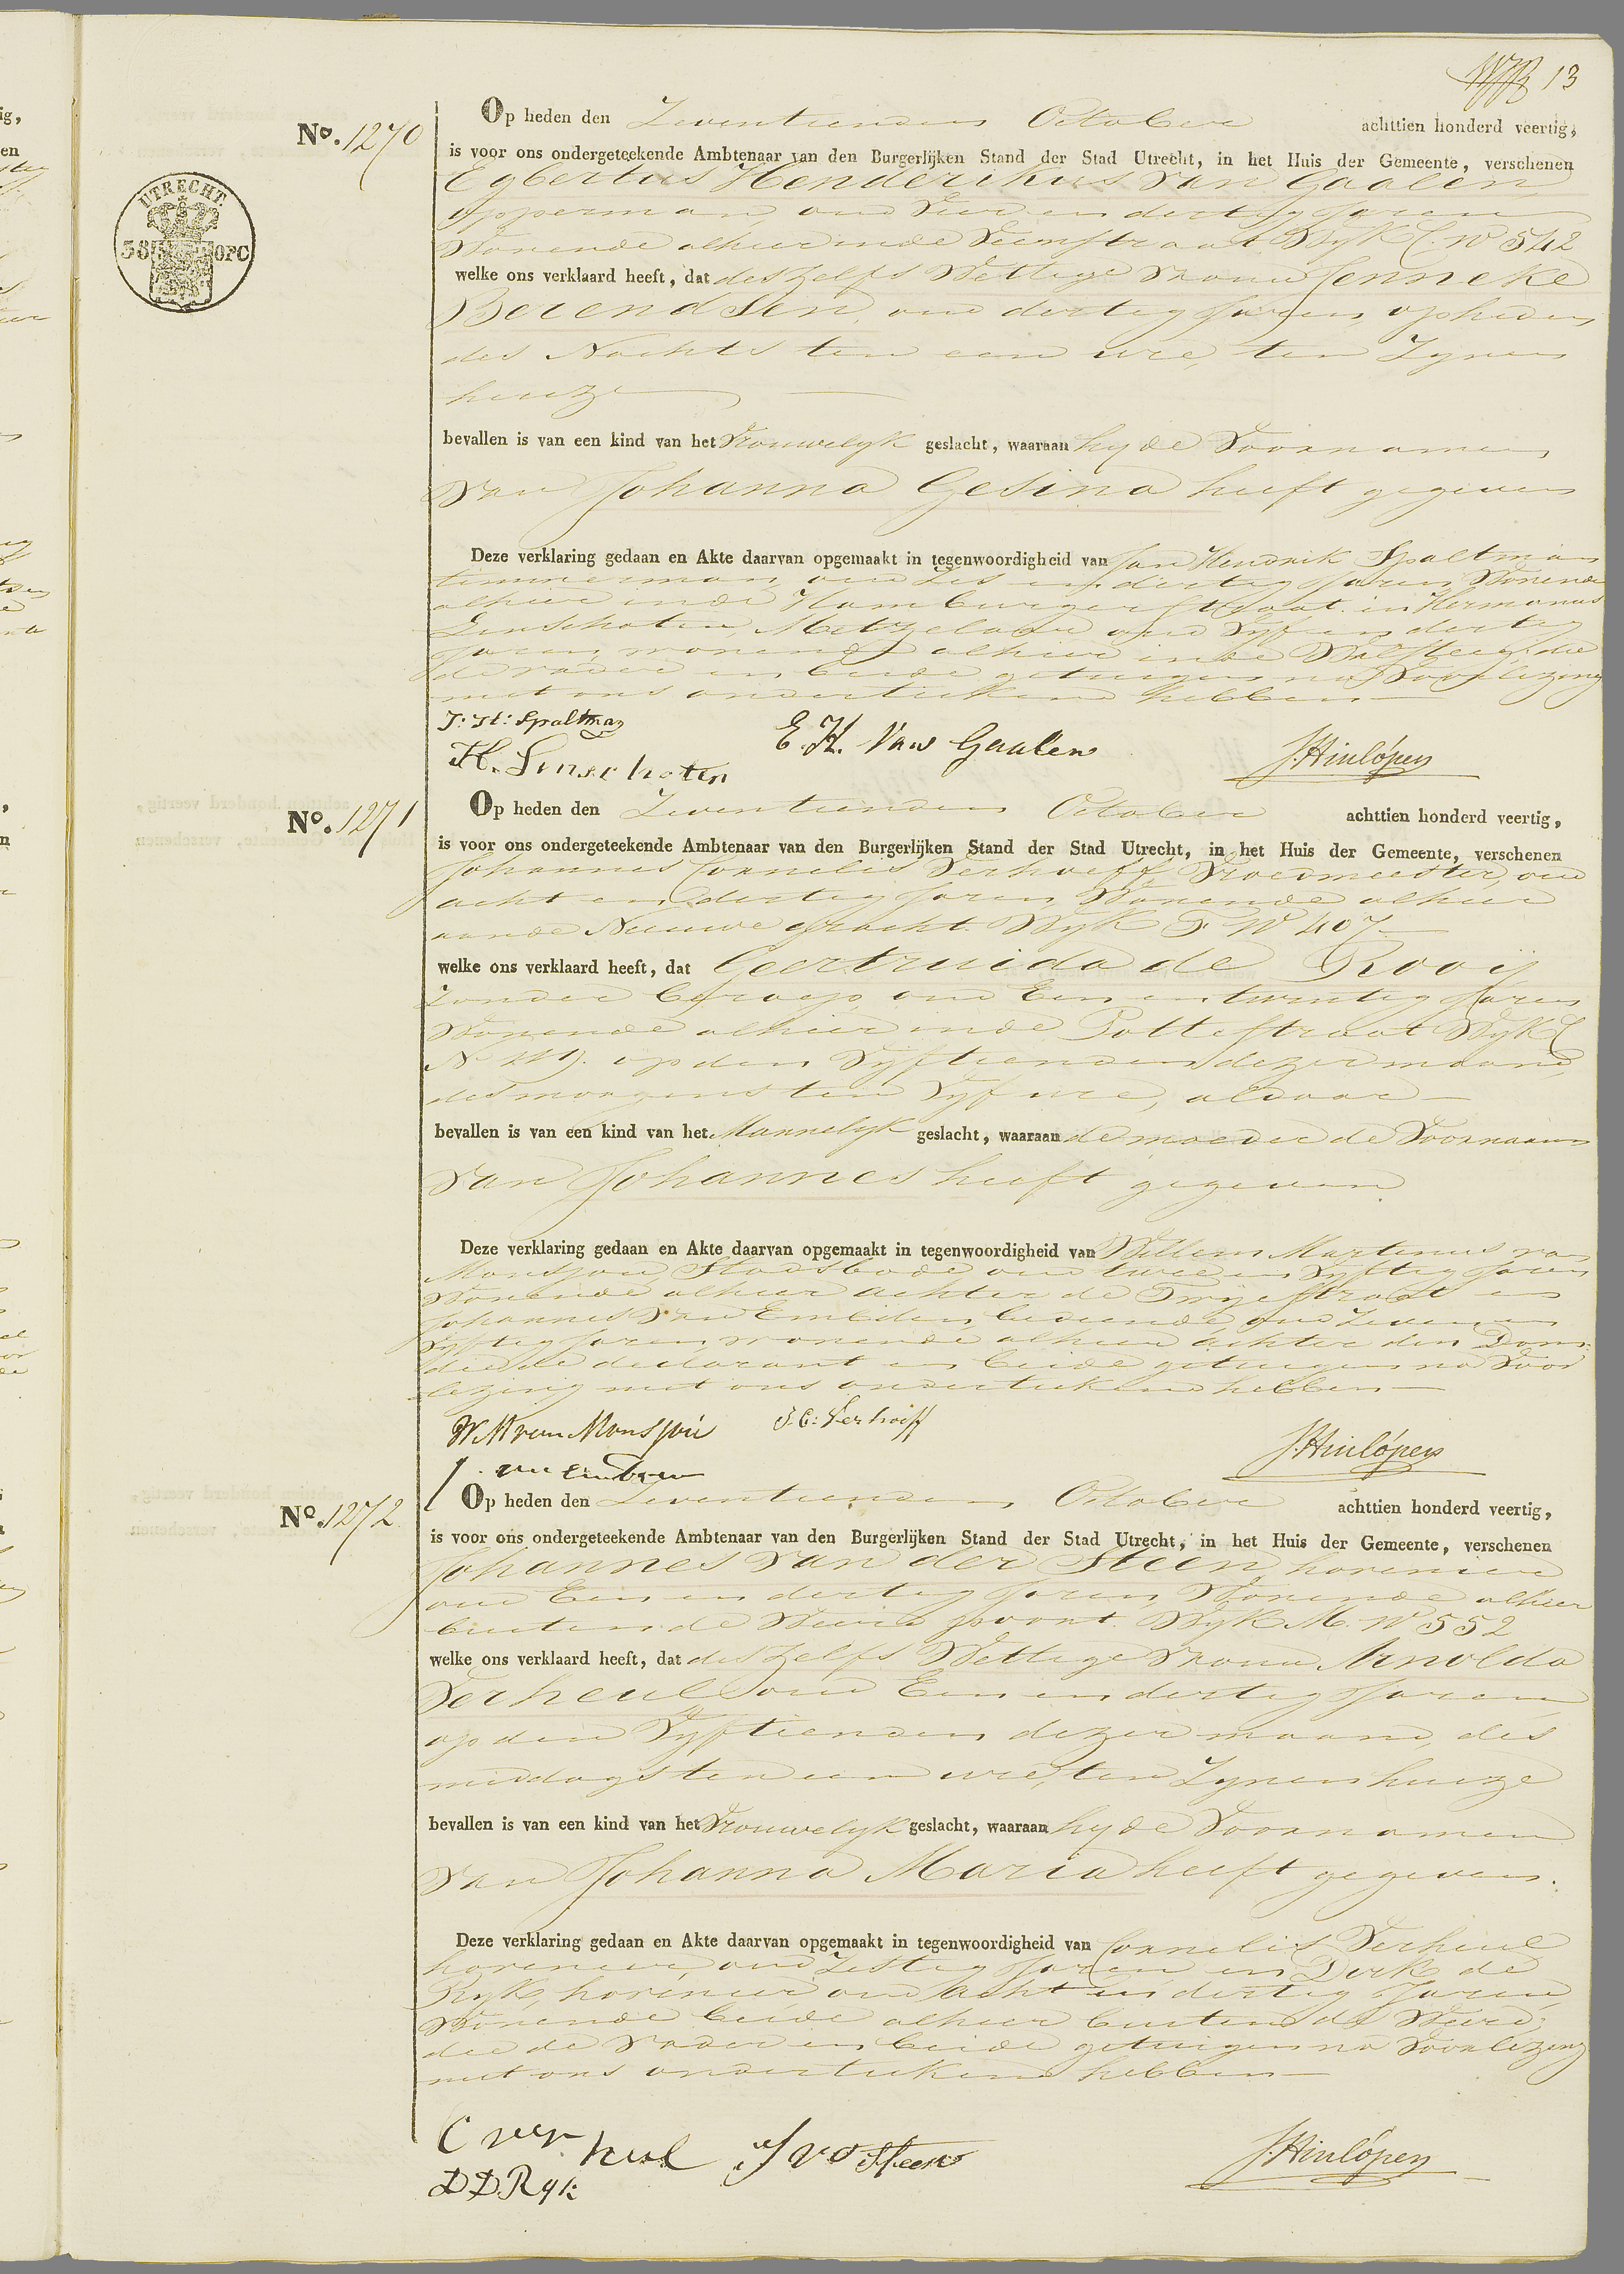 13
No. 1270
UTRECHT.
38 OPC
Op heden den Zeventienden October achttien honderd veertig,
is voor ons ondergeteekende Ambtenaar van den Burgerlijken Stand der Stad Utrecht, in het Huis der Gemeente, verschenen
Egbertus Henderikus van Gaalen,
opperman, oud Vier en dertig Jaren
Wonende alhier inde Veenstraat Wyk C. No 542
welke ons verklaard heeft, dat deszelfs Wettige Vrouw Jenneke
Berendsen, oud dertig Jaren, opheden
des Nachts ten een ure, ten Zynen
huize
bevallen is van een kind van het Vrouwelyk geslacht, waaraan hy de Voornamen
van Johanna Gesina heeft gegeven
Deze verklaring gedaan en Akte daarvan opgemaakt in tegenwoordigheid van Jan Hendrik Spaltman
timmerman, oud Zes en dertig Jaren Wonende
alhier inde Hamburgerstraat. in Hermanus
Linschoten, Metzelaar oud Vyf en dertig
Jaren, wonende alhier inde Walsteeg, die
de vader en beide getuigen na Voorlezing
met ons onderteekend hebben
J: H: Spaltman
E. H. Van Gaalen
H. Linschoten
J. Hinlópen
No. 1271
Op heden den Zeventienden October achttien honderd veertig,
is voor ons ondergeteekende Ambtenaar van den Burgerlijken Stand der Stad Utrecht, in het Huis der Gemeente, verschenen
Johannes Cornelis Verhoeff, Vroedmeester, oud
acht en dertig Jaren, Wonende alhier
aande Nieuwe gracht. Wyk F No 407
welke ons verklaard heeft, dat Geertruida de Rooij
Zonder beroep, oud Een en twintig Jaren
Wonende alhier inde Pottestraat Wyk C
No 119. op den Vyftienden dezer maand,
des morgens ten Vyf ure, aldaar
bevallen is van een kind van het Mannelyk geslacht, waaraan de moeder de Voornaam
van Johannes heeft gegeven
Deze verklaring gedaan en Akte daarvan opgemaakt in tegenwoordigheid van Willem Martinus van
Monsjou, Stadsbode oud twee en Vyftig Jaren
Wonende alhier achter de Twystraat en
Johannes van Embden, bediende oud Zeven en
Vyftig Jaren, wonende alhier achter den Dom:
die de declarant en beide getuigen na Voor
lezing met ons onderteekend hebben
W. M van Monsjou
J. C: Verhoeff
J. van Embden
J. Hinlópen
No. 1272
Op heden den Zeventienden October achttien honderd veertig,
is voor ons ondergeteekende Ambtenaar van den Burgerlijken Stand der Stad Utrecht, in het Huis der Gemeente, verschenen
Johannes van der Steen, hovenier
oud Een en dertig Jaren Wonende alhier
buiten de Weerd poort. Wyk M. No 552
welke ons verklaard heeft, dat deszelfs Wettige Vrouw Arnolda
Verheul oud Een en dertig Jaren
op den Vyftienden dezer maand, des
middags ten een ure, ten Zynen huize
bevallen is van een kind van het Vrouwelyk geslacht, waaraan hy de Voornamen
van Johanna Maria heeft gegeven.
Deze verklaring gedaan en Akte daarvan opgemaakt in tegenwoordigheid van Cornelis Verheul
hovenier, oud Zestig Jaren en Dirk de
Ryk, hovenier oud Acht en dertig Jaren,
Wonende beide alhier buiten de Weerd,
die de vader en beide getuigen na Voorlezing
met ons onderteekend hebben
C verheul
J v d Steen
D D. Ryk
J. Hinlópen